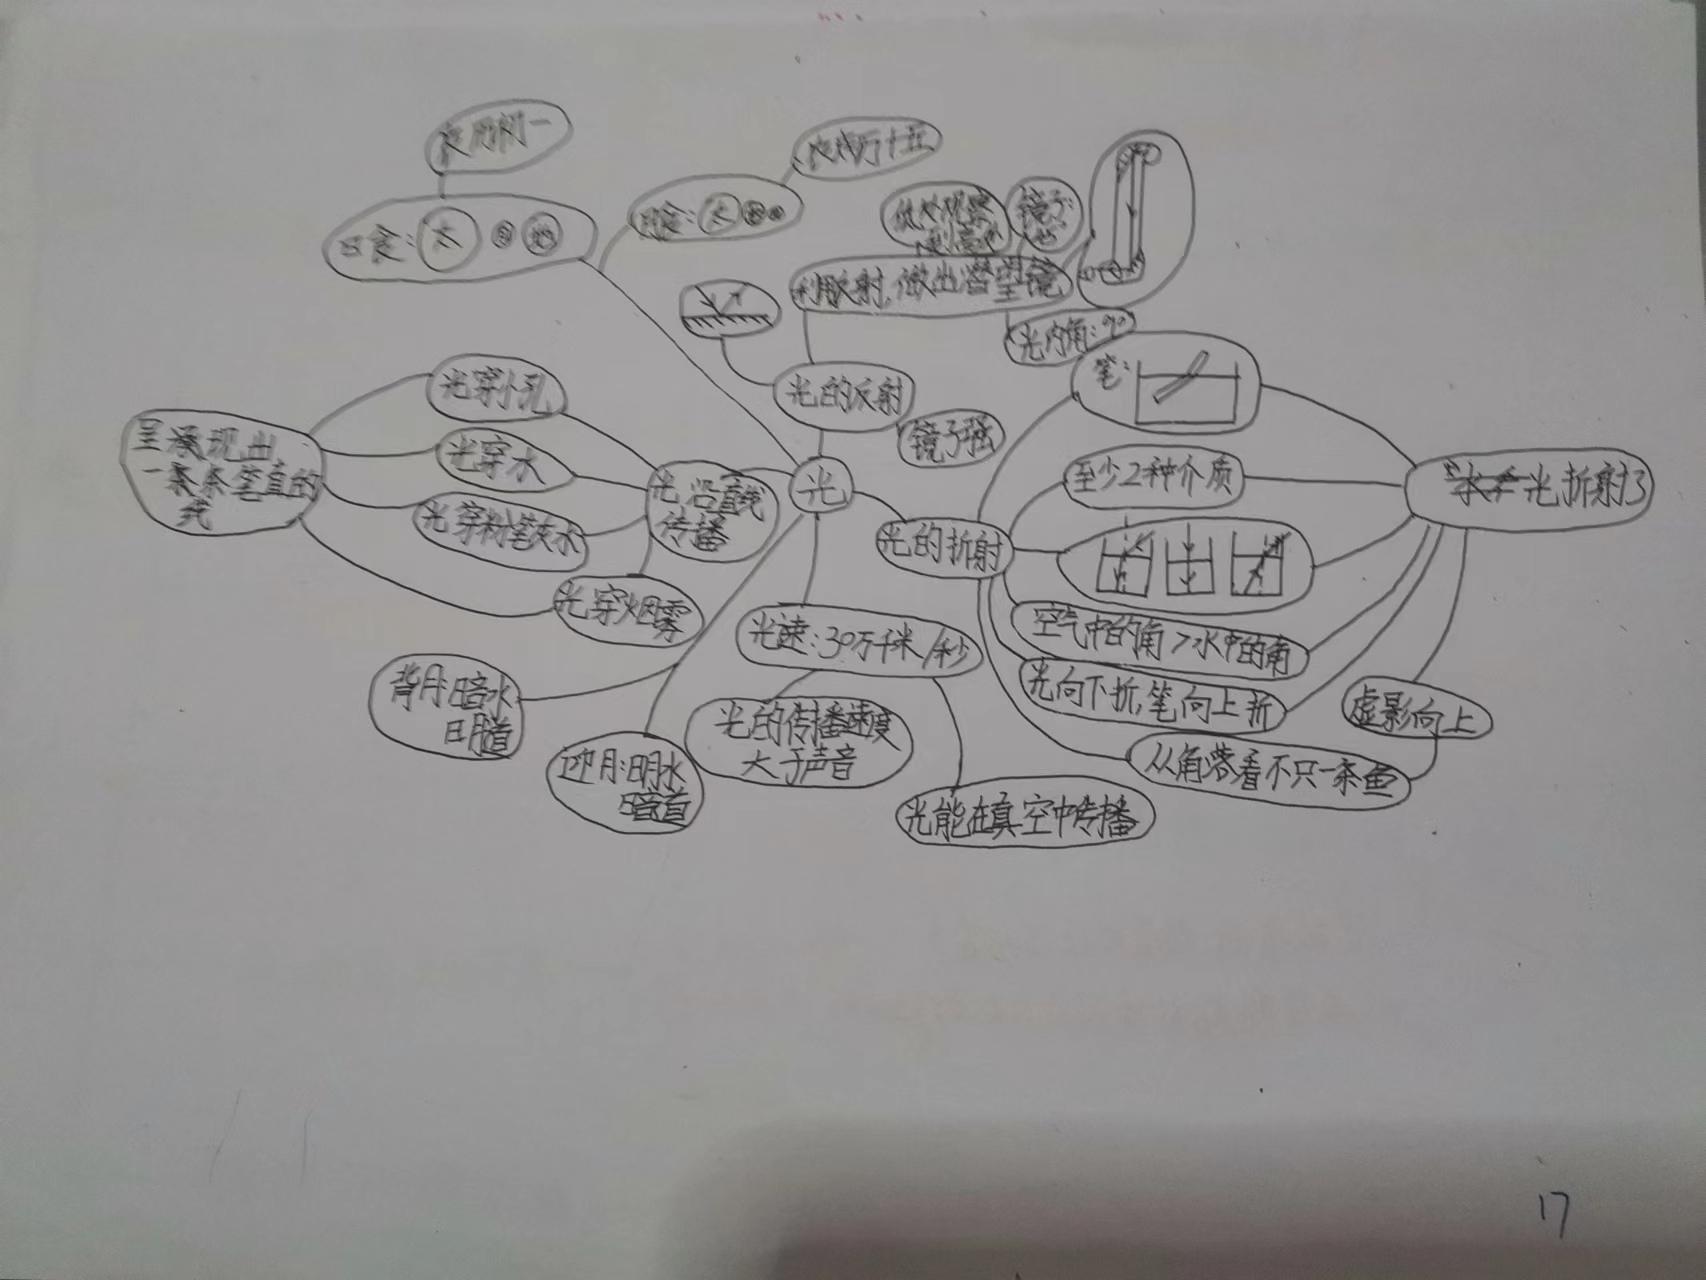 初一
十五
日食:太 月 地
食:太
低处观察
到高处
镜子:
利用反射,做出潜望镜
光内角:90°
笔:
光穿小孔
光的反射
镜子强
呈现出
一条条笔直的
线
光穿水
光沿直线
传播
光
至少2种介质
光折射了
光穿粉笔灰水
光的折射
光穿烟雾
光速:30万千米/秒
空气中的角>水中的角
背月:暗水
明道
光向下折,笔向上折
虚影向上
光的传播速度
大于声音
迎月:明水
暗道
从角落看不只一条鱼
光能在真空中传播
17